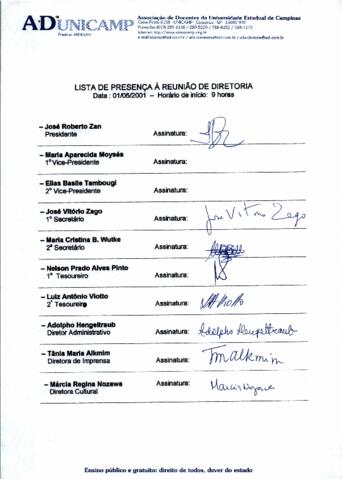 ADUNICAMP
Associação de Docentes da Universidade Estadual de Campinas
LISTA DE PRESENÇA À REUNIÃO DE DIRETORIA
Data : 01/06/2001 – Horário de início: 9 horas
– José Roberto Zan Assinatura:
Presidente
– Maria Aparecida Moysés Assinatura:
1ª Vice-Presidente
– Elias Basile Tambougi Assinatura:
2º Vice-Presidente
– José Vitório Zago Assinatura: José Vitório Zago
1º Secretário
– Maria Cristina B. Wutke Assinatura:
2º Secretário
– Nelson Prado Alves Pinto Assinatura:
1º Tesoureiro
– Luiz Antônio Viotto Assinatura:
2º Tesoureiro
– Adolpho Hengeltraub Assinatura: Adolpho Hengeltraub
Diretor Administrativo
– Tânia Maria Alkmim Assinatura: Tmalkmim
Diretora de Imprensa
– Márcia Regina Nozawa Assinatura: Marcia Nozawa
Diretora Cultural
Ensino público e gratuito: direito de todos, dever do estado